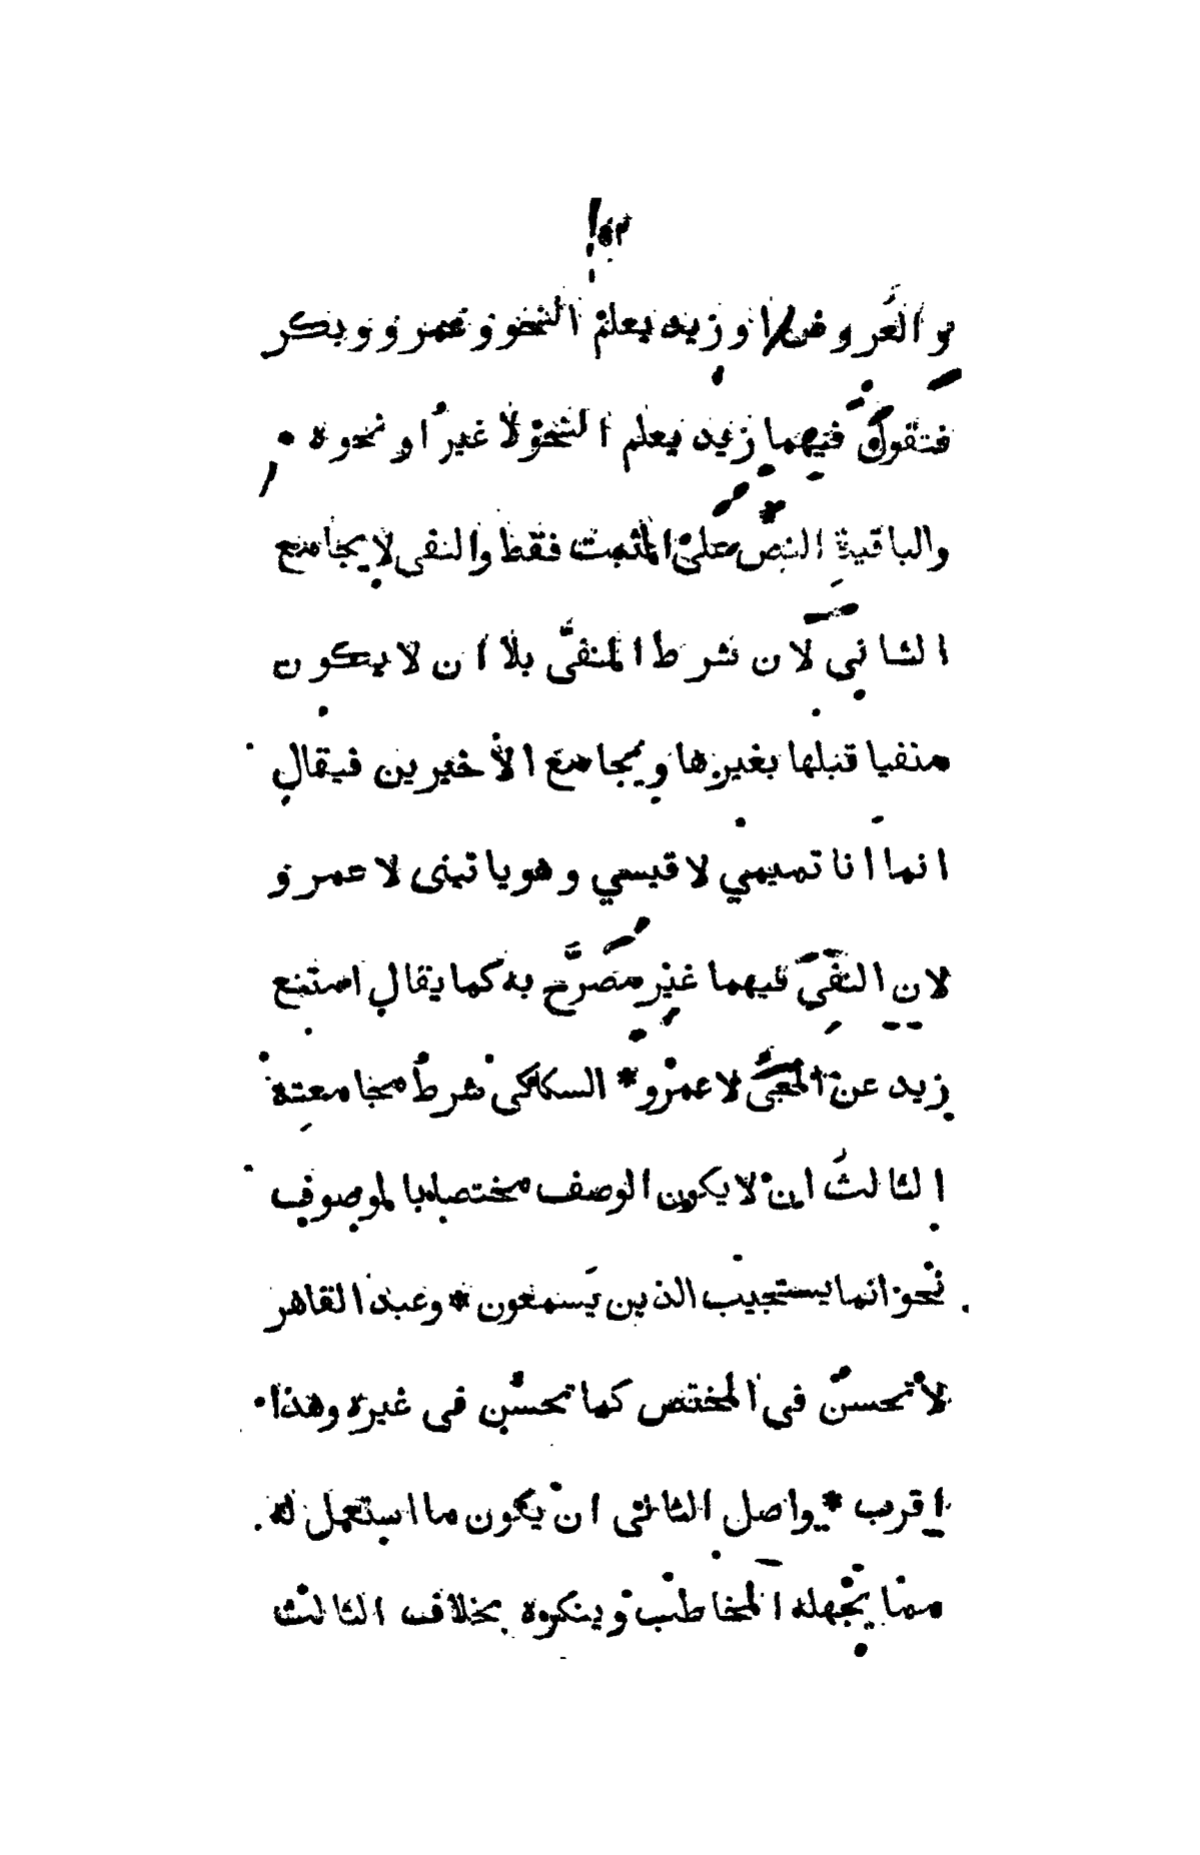 ٥٢
والعروض او زيد يعلم النحو وعمرو وبكر
فتقول فيهما زيد يعلم النحو لا غير او نحوه
والباقية النص على المثبت فقط والنفى لا يجامع
الثاني لان شرط المنفىّ بلا ان لا يكون
منفيا قبلها بغيرها ويجامع الأخيرين فيقال
انما انا تميمي لا قيسي وهو ياتينى لا عمرو
لان النفي فيهما غير مصرَّح به كما يقال امتنع
زيد عن المجئ لا عمرو * السكاكى شرط مجامعته
الثالث ان لا يكون الوصف مختصا بالموصوف
نحو انما يستجيب الذين يَسمعون * وعبد القاهر
لا تحسن في المختص كما تحسن فى غيره وهذا
اقرب * واصل الثانى ان يكون ما استعمل له
مما يجهله المخاطب وينكره بخلاف الثالث